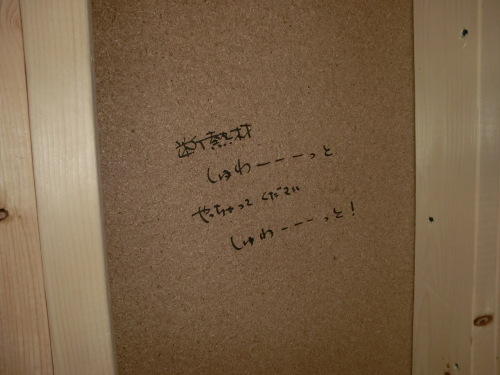 断熱材
しゅわーーーっと
やっちゃってください
しゅわーーーっと！